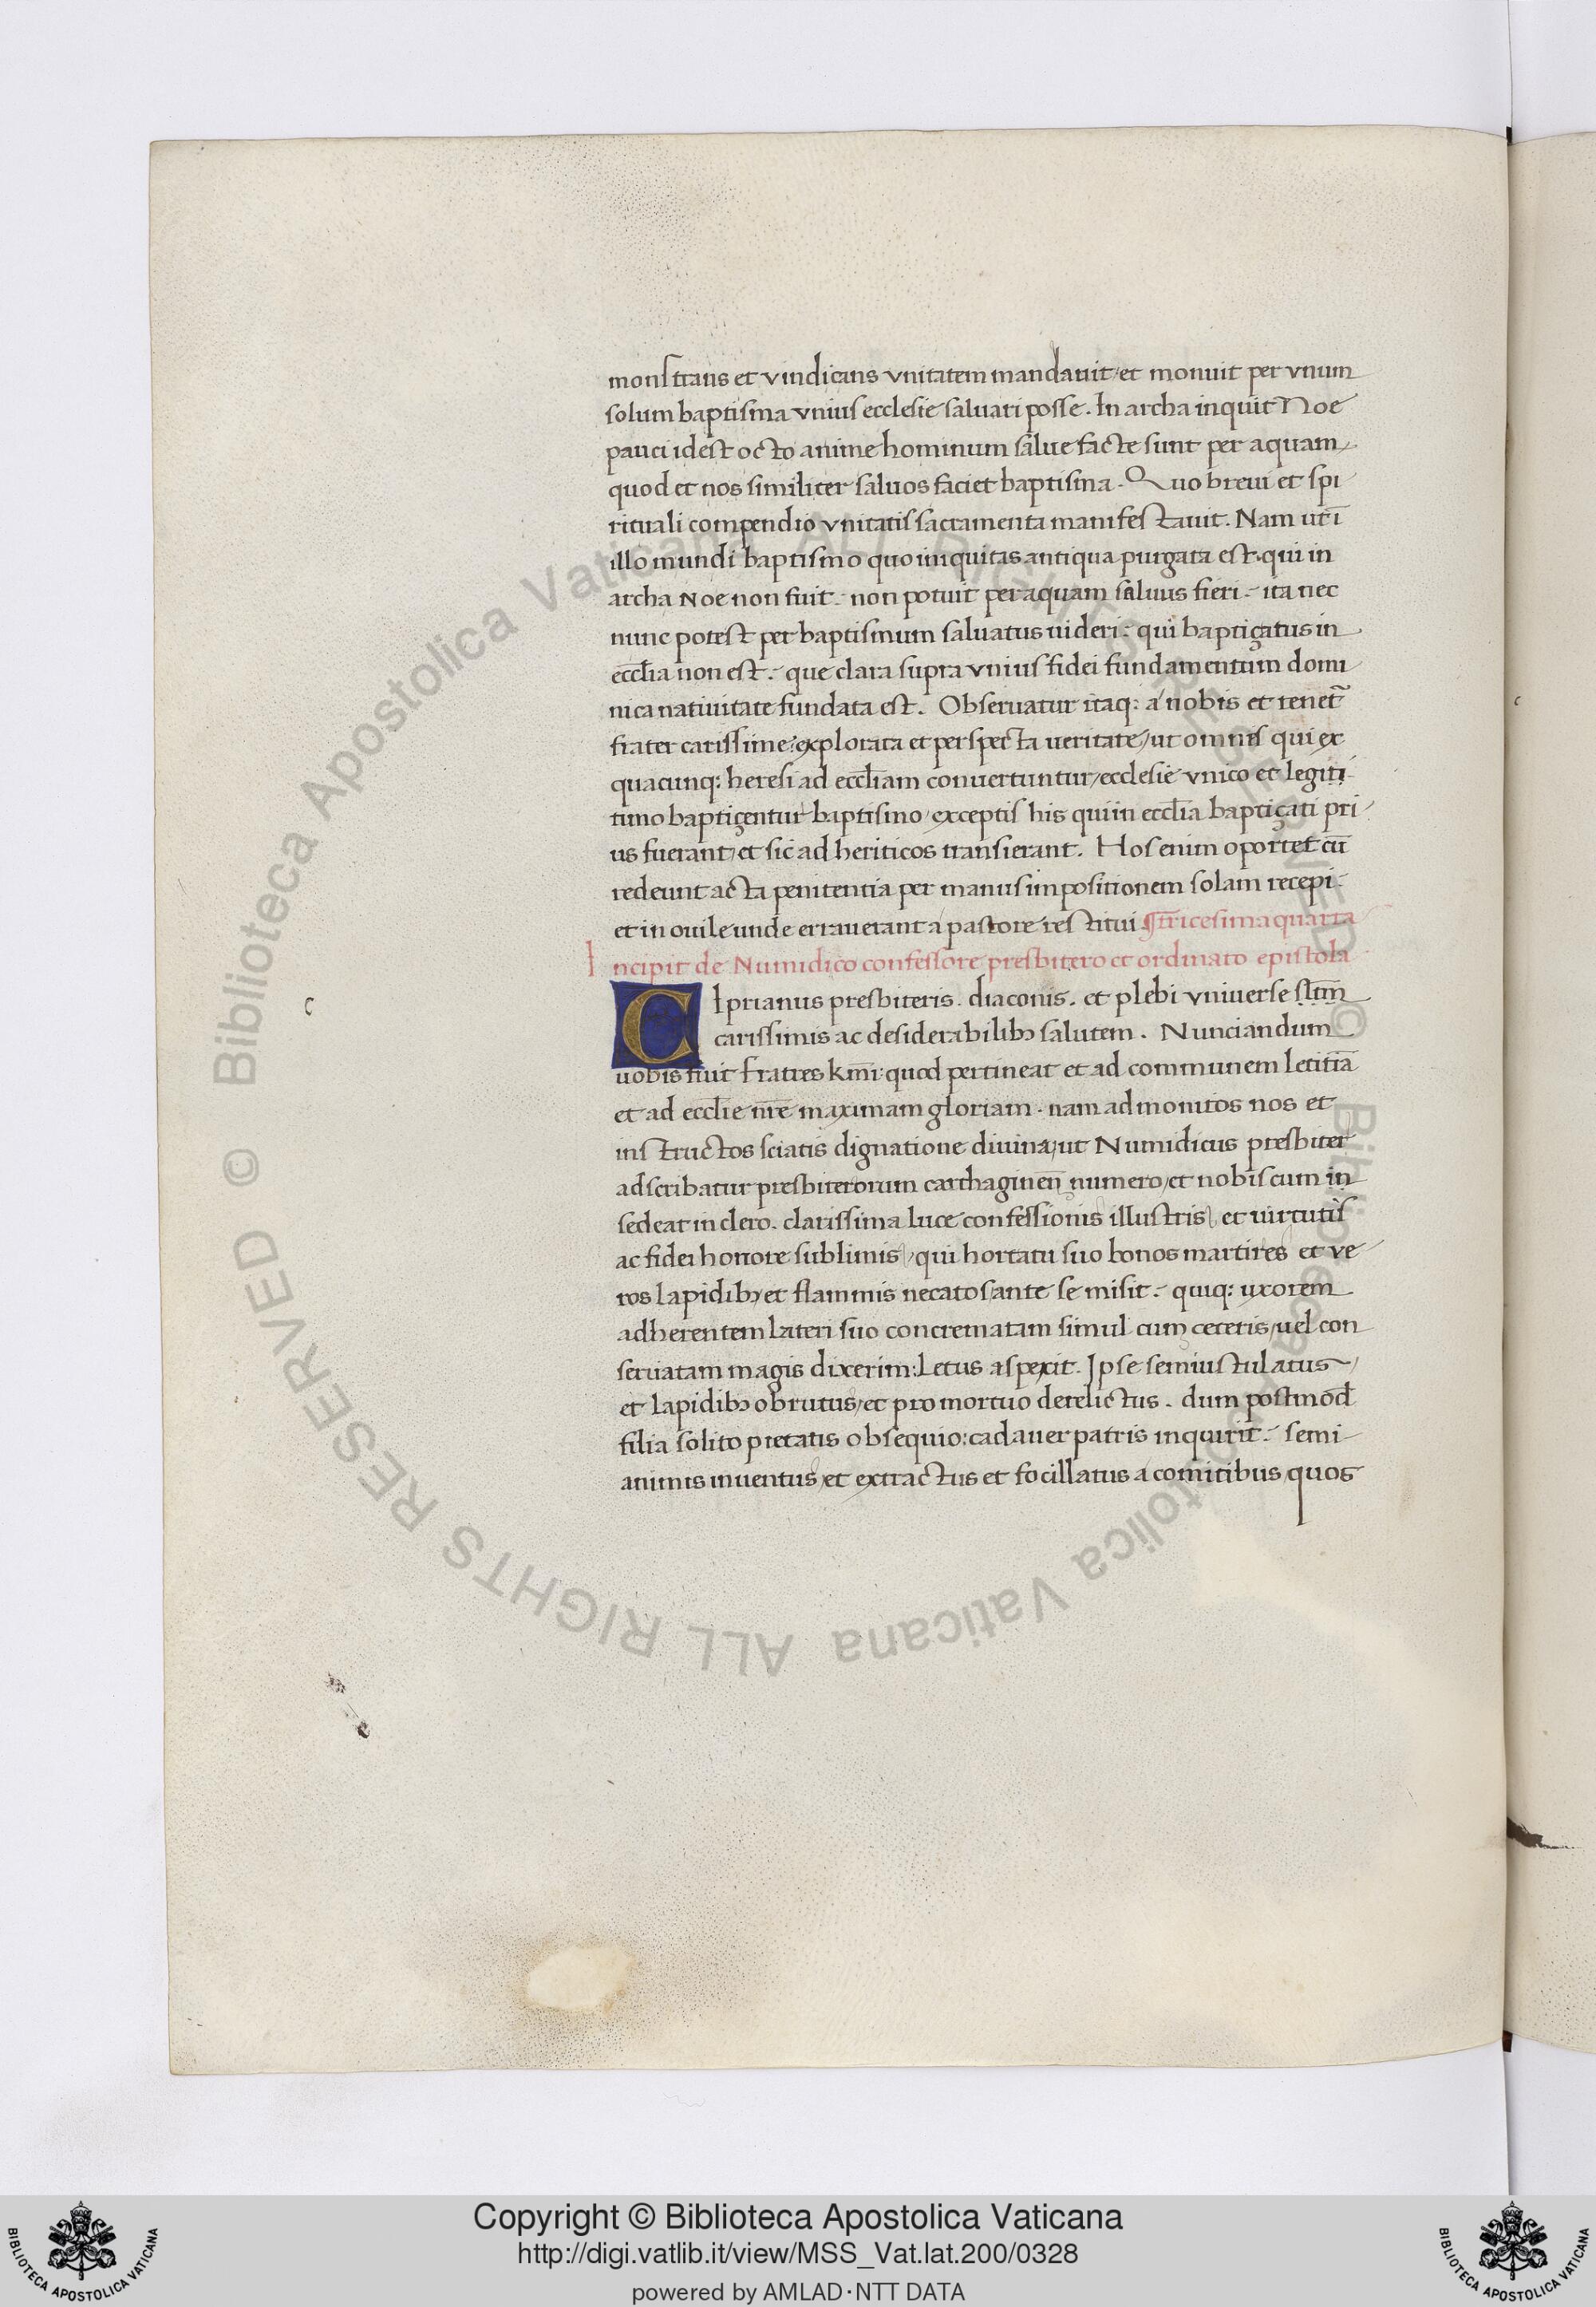 monstrans et vindicans vnitatem mandauit / et monuit per vnum
solum baptisma vnius ecclesie saluari posse. In archa inquit Noe
pauci idest octo anime hominum salue facte sunt per aquam
quod et nos similiter saluos faciet baptisma. Quo breui et spi
rituali compendio vnitatis sacramenta manifestauit. Nam ut ĩ
illo mundi baptismo quo iniquitas antiqua purgata est. qui in
archa Noe non fuit. non potuit per aquam saluus fieri. ita nec
nunc potest per baptismum saluatus uideri. qui baptiçatus in
eccľia non est. que clara supra vnius fidei fundamentum domi
nica natiuitate fundata est. Obseruatur itaq; a nobis et tenet᷑
frater carissime: explorata et perspecta ueritate / ut omnis qui ex
quacunq; heresi ad eccľiam convertuntur / ecclesie vnico et legiti
timo baptiçentur baptismo / exceptis his qui in eccľia baptiçati pri
us fuerant / et sic ad heriticos transierant. Hos enim oportet cũ
redeunt acta penitentia per manus impositionem solam recepi.
et in ouile unde errauerant a pastore restitui ¶ Tricesima quarta
Incipit de Numidico confessore presbitero et ordinato epistola
CIprianus presbiteris. diaconis. et plebi vniuerse
carissimis ac desiderabilibꝫ salutem. Nunciandum
uobis fuit fratres km̃i: quod pertineat et ad communem letitiã
et ad eccľie nr̃e maximam gloriam. nam admonitos nos et
instructos sciatis dignatione diuina / ut Numidicus presbiter
adscribatur presbiterorum carthaginen̄ numero / et nobiscum in
sedeat in clero. clarissima luce confessionis illustris / et uirtutis
ac fidei honore sublimis / qui hortatu suo bonos martires et ve
ros lapidibꝫ / et flammis necatos ante se misit. quiq; uxorem
adherentem lateri suo concrematam simul cum ceteris / uel con
seruatam magis dixerim: Letus aspexit. Ipse semiustulatus /
et lapidibꝫ obrutus / et pro mortuo derelictus. dum postmod̄
filia solito pietatis obsequio: cadauer patris inquirit. semi
animis inuentus / et extractus et focillatus a comitibus / quos
Copyright © Biblioteca Apostolica Vaticana
http://digi.vatlib.it/view/MSS_Vat.lat.200/0328
powered by AMLAD·NTT DATA
BIBLIOTECA APOSTOLICA VATICANA
BIBLIOTECA APOSTOLICA VATICANA
© Biblioteca Apostolica Vaticana ALL RIGHTS RESERVED
© Biblioteca Apostolica Vaticana ALL RIGHTS RESERVED